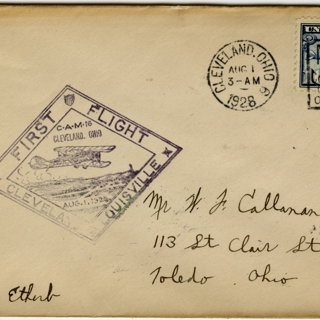 CLEVELAND, OHIO 6
AUG 1
3-AM
1928
UN
FIRST FLIGHT
C-A-M-16
CLEVELAND, OHIO
AUG. 1, 1928
CLEVELA
OUISVILLE
Mr W F Callanan
113 St Clair St
Toledo Ohio